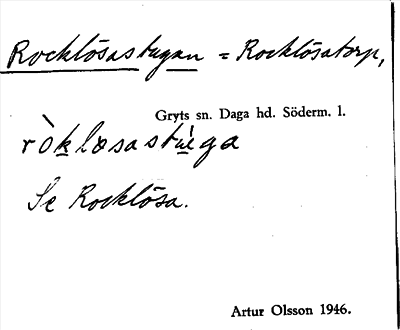 Rocklösastugan = Rocklösatorp,
Gryts sn. Daga hd. Söderm. l.
ròklosastùga
Se Rocklösa.
Artur Olsson 1946.